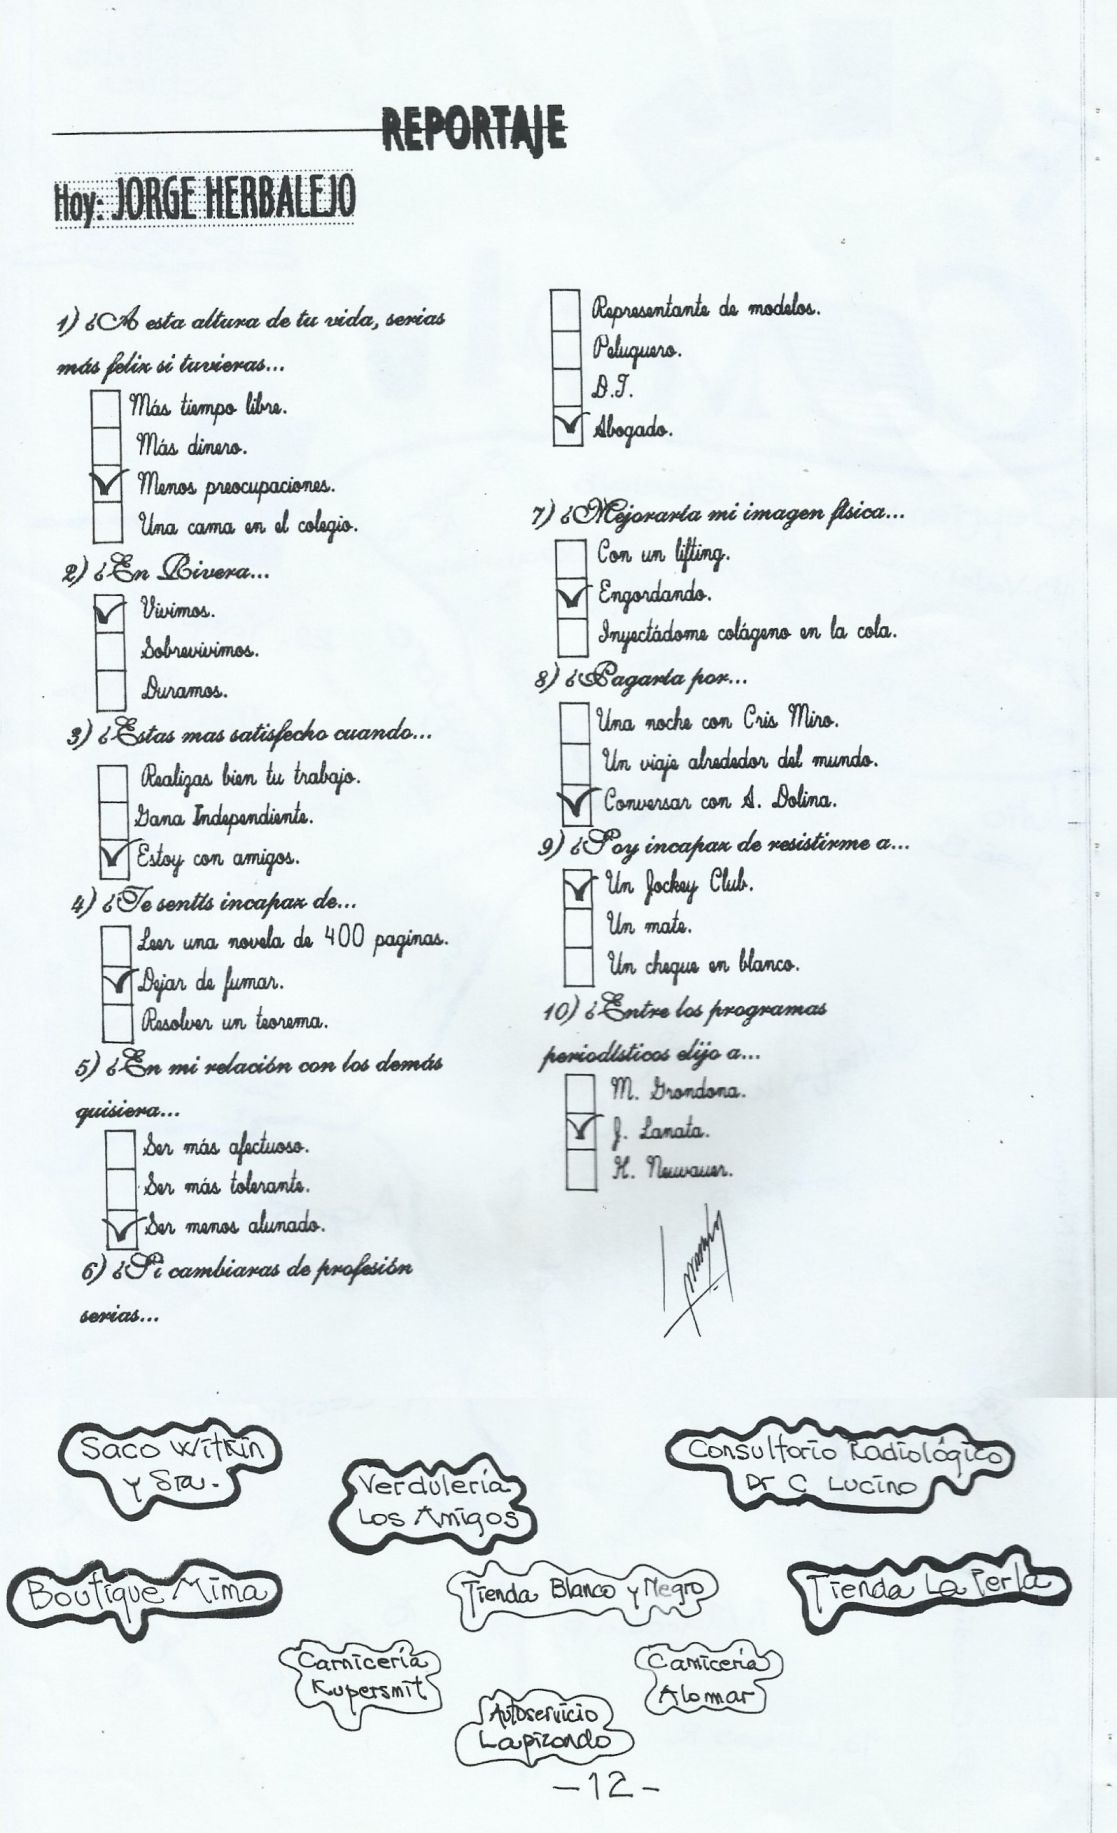 REPORTAJE
Hoy: JORGE HERBALEJO
1) ¿A esta altura de tu vida, serias
más felix si tuvieras...
Más tiempo libre.
Más dinero.
Menos preocupaciones.
Una cama en el colegio.
2) ¿En Rivera...
Vivimos.
Sobrevivimos.
Duramos.
3) ¿Estas mas satisfecho cuando...
Realizas bien tu trabajo.
Gana Independiente.
Estoy con amigos.
4) ¿Te sentís incapaz de...
Leer una novela de 400 paginas.
Dejar de fumar.
Resolver un teorema.
5) ¿En mi relación con los demás
quisiera...
Ser más afectuoso.
Ser más tolerante.
Ser menos alunado.
6) ¿Si cambiaras de profesión
serias...
Representante de modelos.
Peluquero.
D.T.
Abogado.
7) ¿Mejoraría mi imagen física...
Con un lifting.
Engordando.
Inyectádome colágeno en la cola.
8) ¿Pagaría por...
Una noche con Cris Miro.
Un viaje alrededor del mundo.
Conversar con A. Dolina.
9) ¿Soy incapaz de resistirme a...
Un Jockey Club.
Un mate.
Un cheque en blanco.
10) ¿Entre los programas
periodísticos elijo a...
M. Grondona.
J. Lanata.
H. Neuwauer.
Saco Witkin
y Sra.
Verdulería
Los Amigos
Consultorio Radiológico
Dr C Lucino
Boutique Mima
Tienda Blanco y Negro
Tienda La Perla
Carnicería
Kupersmit
Carnicería
Alomar
Autoservicio
Lapizondo
-12-